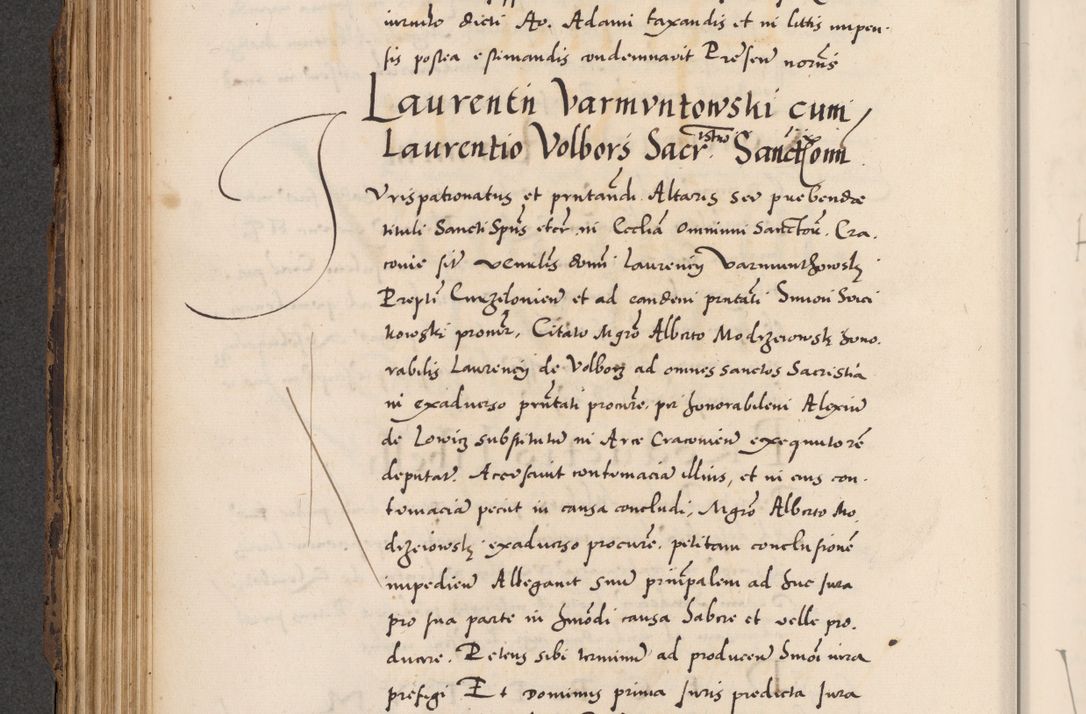 iurulio dicti Ao. Adami taxandis et in littis impen-
sis postea estimandis condemnavit Presen norūs
Laurentii Varmvntowski cum
Laurentio Volbors Sacr istia Sanctorum
Jurispatronatus et prntandi Altaris seu prebendæ
tituli Sancti Spūs etcr in Ecclia Omnium Sanctorū Cra.
covie sitr venlis domi Laurency Varmunthowsky
Prepti Curzelovien et ad eandem prntati Simoni
kowski procur, Citato Mgro Alberto Modrzeiowsky hono.
rabilis Laurency de Volborz ad omnes sanctos Sacristia
in exadverso prntati procure, per honorabilem Alexiu
de Lowicz substitutu in Arce Cracovien exequutore
deputat. Accersavit contumacia illius, et in eius con-
tumacia petiit in causa concludi, Mgro Alberto Mo
drzeiowsky exadverso procure, petitam conclusione
impedien Allegavit suu principalem ad huc iura
pro sua parte in hmodi causa habere et velle pro-
ducere. Petens sibi terminu ad producen hmoi iura
prefigi Et Dominus prima iuris predicta iura